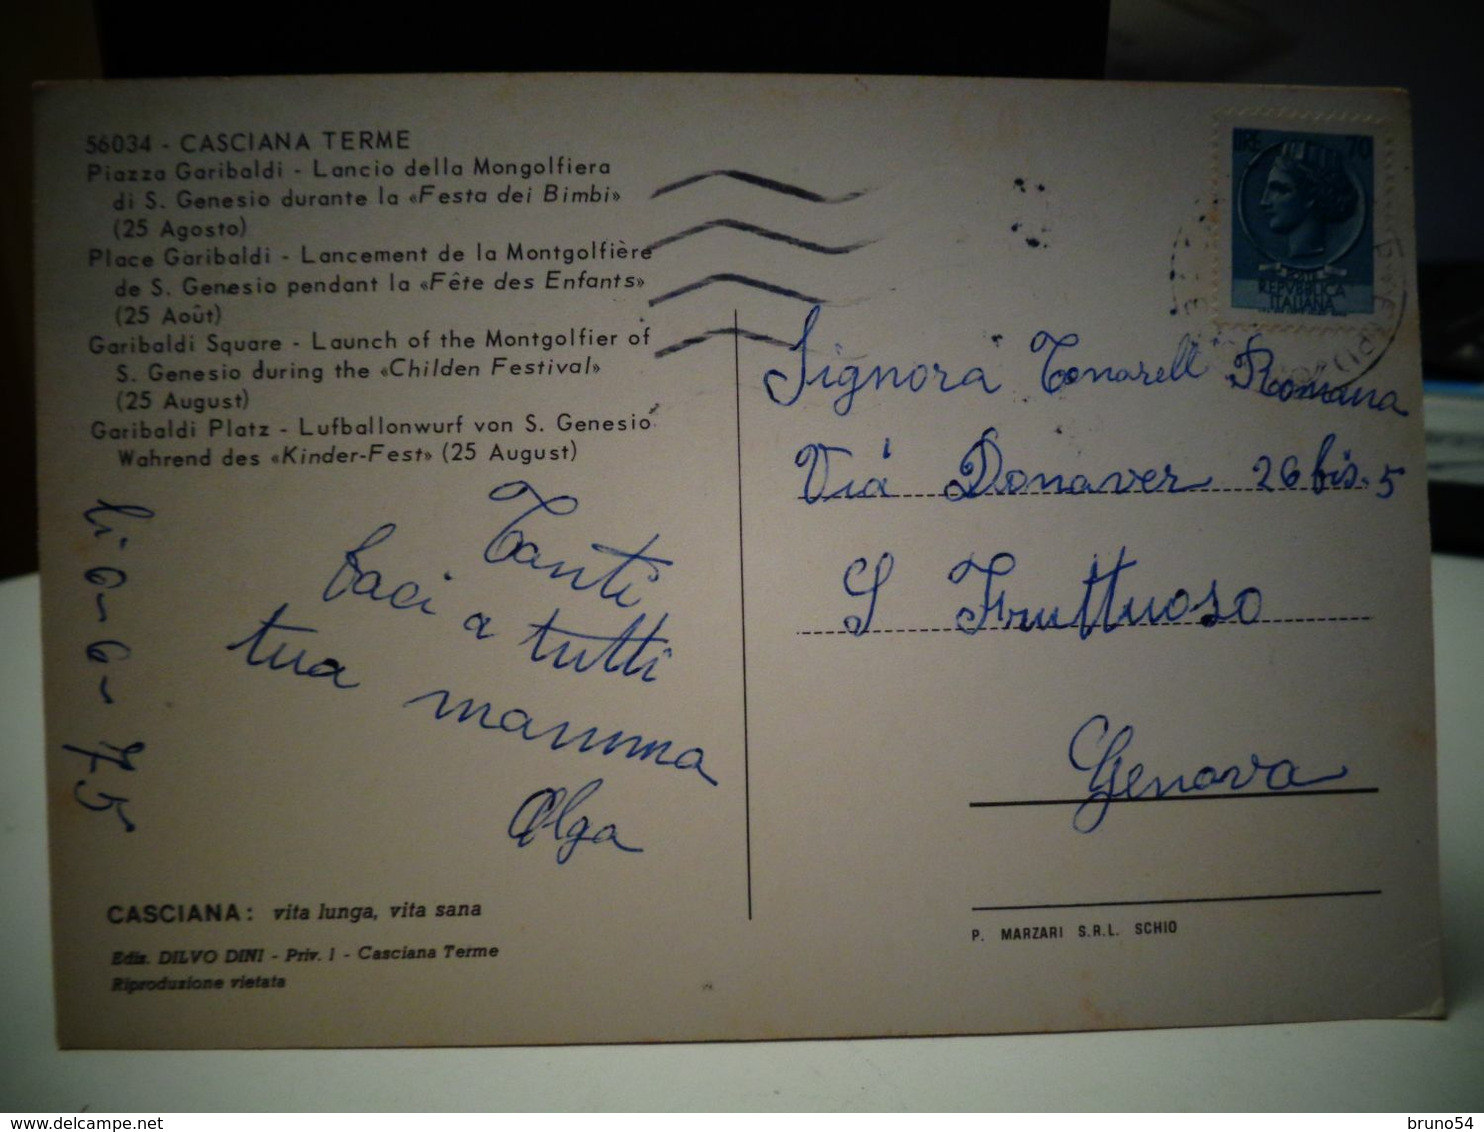 56034 - CASCIANA TERME
Piazza Garibaldi - Lancio della Mongolfiera
di S. Genesio durante la «Festa dei Bimbi»
(25 Agosto)
Place Garibaldi - Lancement de la Montgolfière
de S. Genesio pendant la «Fête des Enfants»
(25 Août)
Garibaldi Square - Launch of the Montgolfier of
S. Genesio during the «Childen Festival»
(25 August)
Garibaldi Platz - Lufballonwurf von S. Genesio
Wahrend des «Kinder-Fest» (25 August)
li 6-6-75
Tanti
baci a tutti
tua mamma
Olga
CASCIANA: vita lunga, vita sana
Ediz. DILVO DINI - Priv. 1 - Casciana Terme
Riproduzione vietata
LIRE 70
POSTE
REPVBBLICA
ITALIANA
Signora Tonarell Romana
Via Donaver 26 bis. 5
S Fruttuoso
Genova
P. MARZARI S.R.L. SCHIO
bruno54